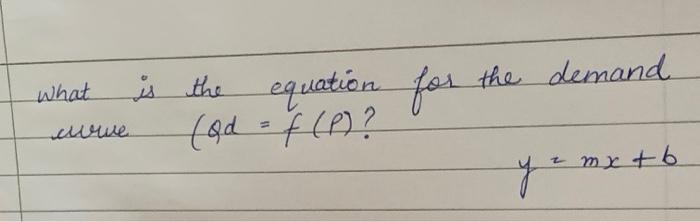 what is the equation for the demand
curve (Qd = f (P)?
y = mx + b